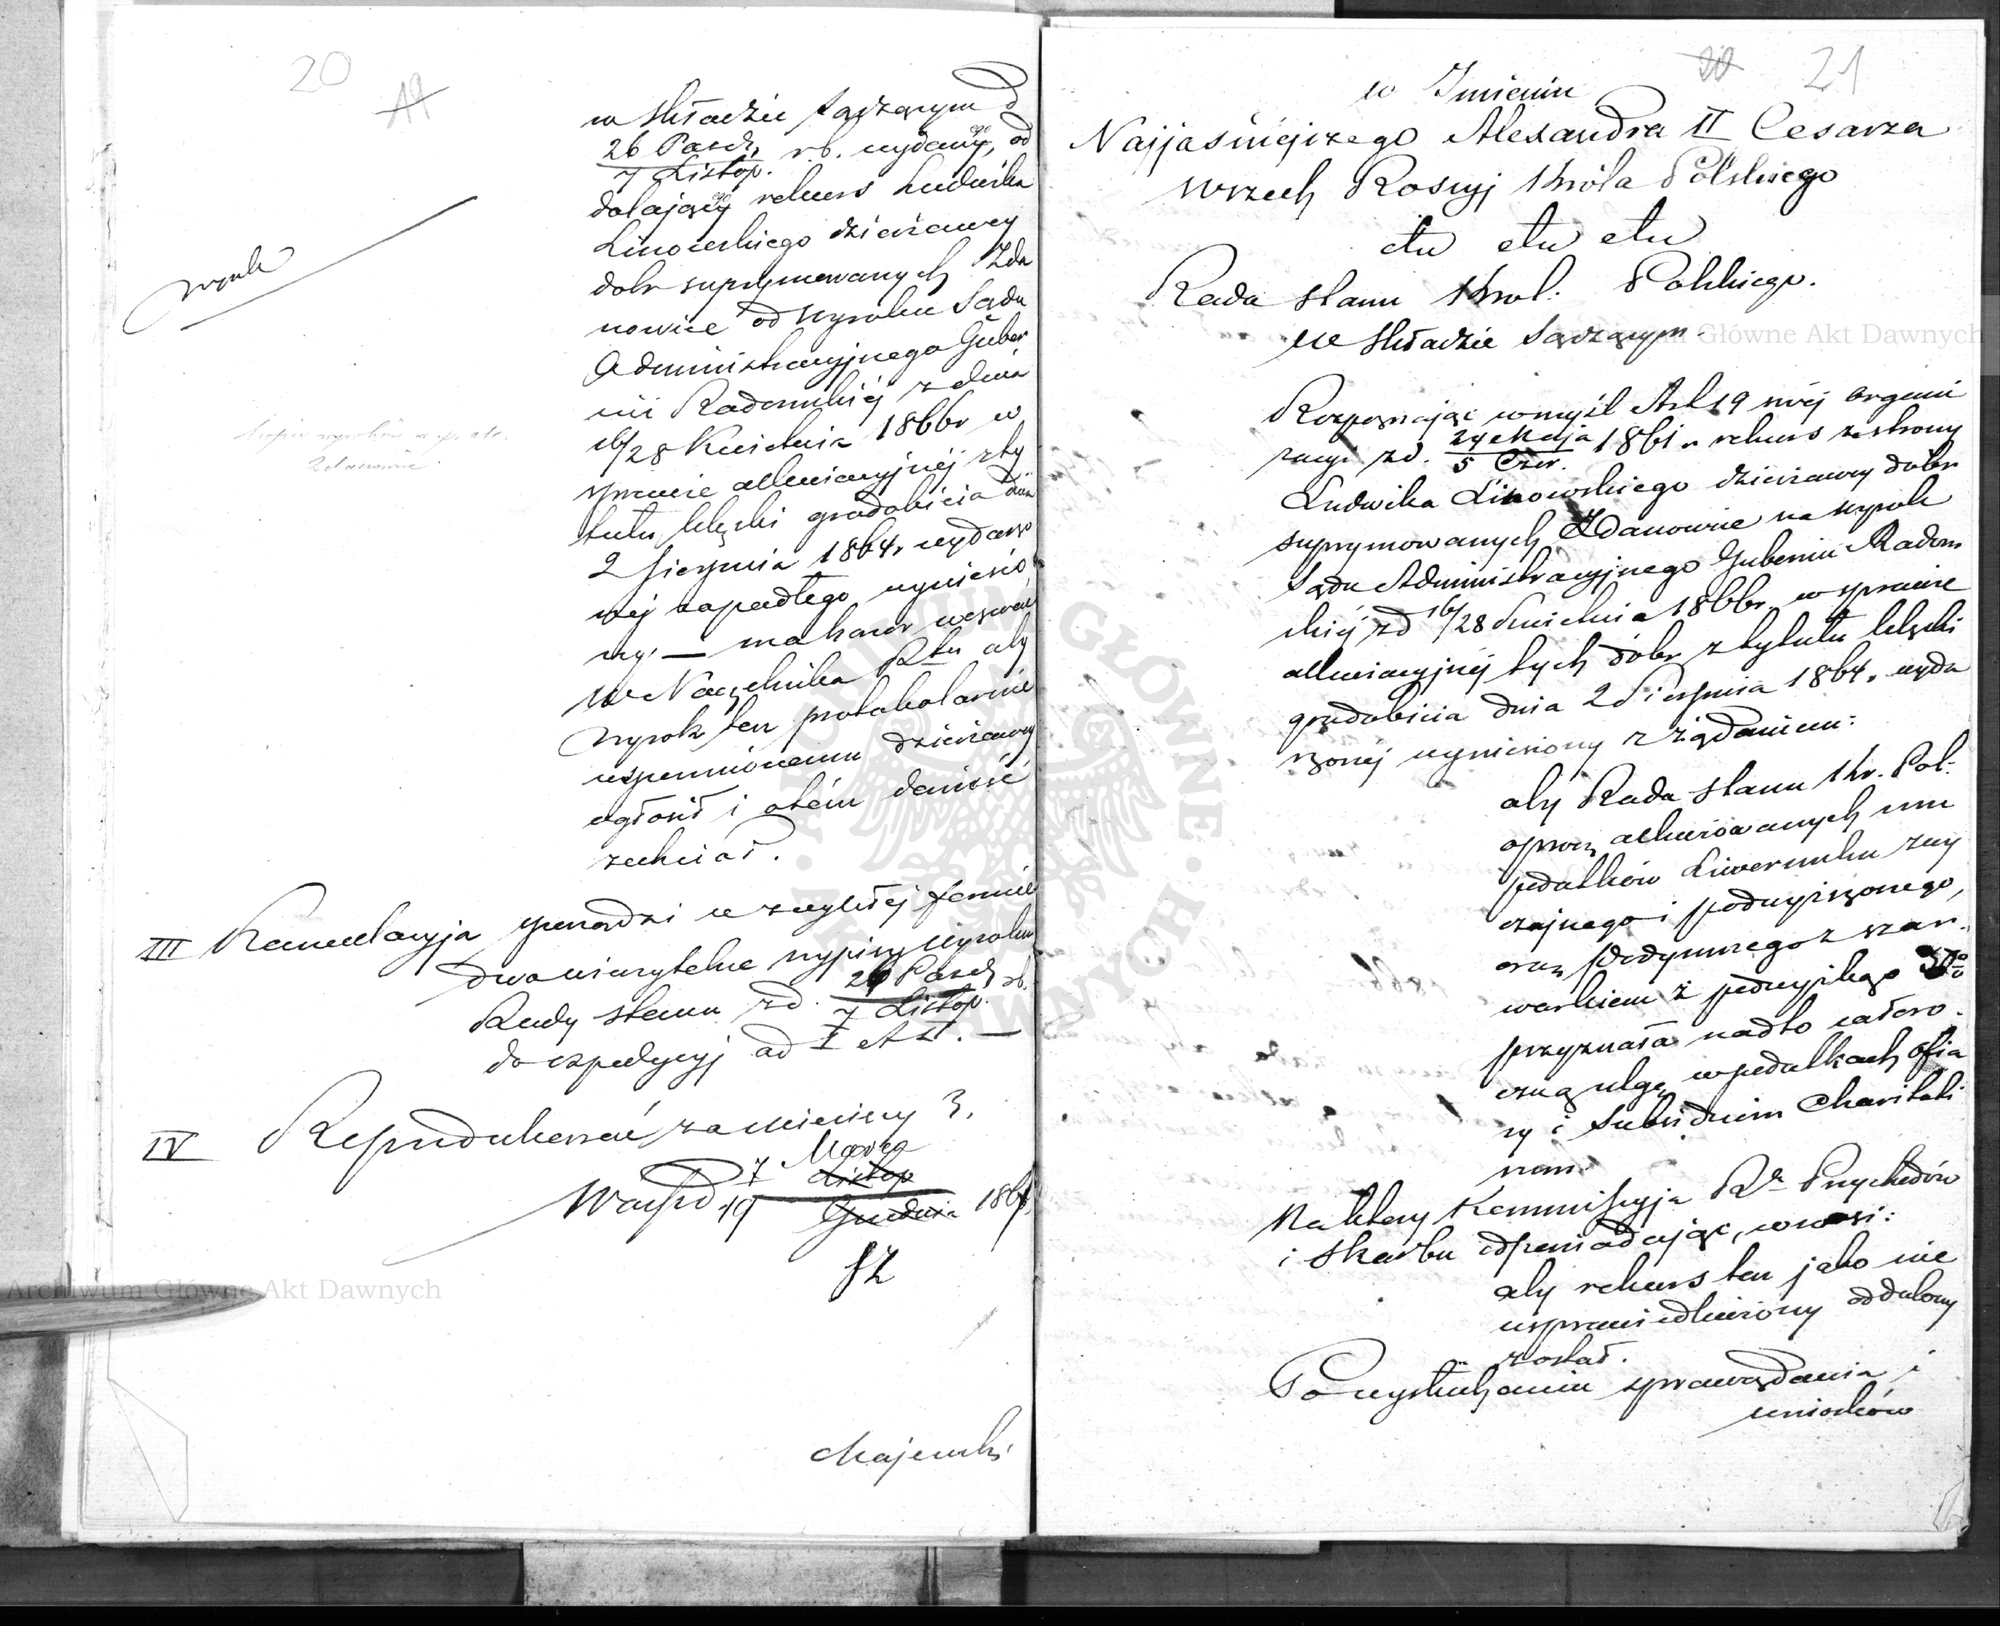 20
w Składzie Sądzącym d
26 Paźdz.
7 Listop. r.b. wydany, od
dalający rekurs Ludwika
Linowskiego dzierżawcy
dóbr suprymowanych Zda
nowice od wyroku Sądu
Administracyjnego Guber
nii Radomskiej z dnia
16/28 Kwietnia 1866r w
sprawie allewiacyjnéj z ty
tułu klęski gradobicia dnia
2 Sierpnia 1864r wydarzo
néj zapadłego wyniesio
ny. — ma honor wezwać
W Naczelnika Ptu aby
wyrok ten protokolarnie
wspomnionemu dzierżawcy
ogłosił i o tém donieść
zechciał.
wyrok
Kopia wyroków
Zdanowice.
III Kancellaryja sporządzi w zwykłej formie
dwa wierzytelne wypisy wyroku
Rady Stanu z d. 26 Paźdz
7 Listop. rb.
do expedycyj ad I et II. —
IV Reprodukować za miesięcy 3.
Warsz. d. 7 Marca
Listop
19 Grudnia 186
SZ
Majewski
21
w Imieniu
Najjaśniejszego Alexandra II Cesarza
wszech Rossyj Króla Polskiego
etc etc etc
Rada Stanu Król: Polskiego.
we Składzie Sądzącym.
Rozpoznając w myśl Art 19 swéj organi
zacyi z d. 24 Maja
5 Czer. 1861 r rekurs ze strony
Ludwika Linowskiego dzierżawcy dóbr
suprymowanych Zdanowice na wyrok
Sądu Administracyjnego Gubernii Radom
skiéj z d 16/28 Kwietnia 1866r w sprawie
allewiacyjnéj tych dóbr z tytułu klęski
gradobicia dnia 2 Sierpnia 1864r wyda
rzonéj wyniesiony z żądaniem:
aby Rada Stanu Kr. Pol:
oprócz allewiowanych mu
podatków Liwerunku zwy
czajnego i podwyższonego,
oraz Podymnego z szar-
warkiem i podwyżką 50%
przyznała nadto całoro-
czną ulgę w podatkach ofia
ry i Subsidium Charitati
vum.
Na który Kommissyja Rz Przychodów
i Skarbu odpowiadając, wnosi:
aby rekurs ten jako nie
usprawiedliwiony oddalony
został.
Po wysłuchaniu sprawozdania i
wniosków
Archiwum Główne Akt Dawnych